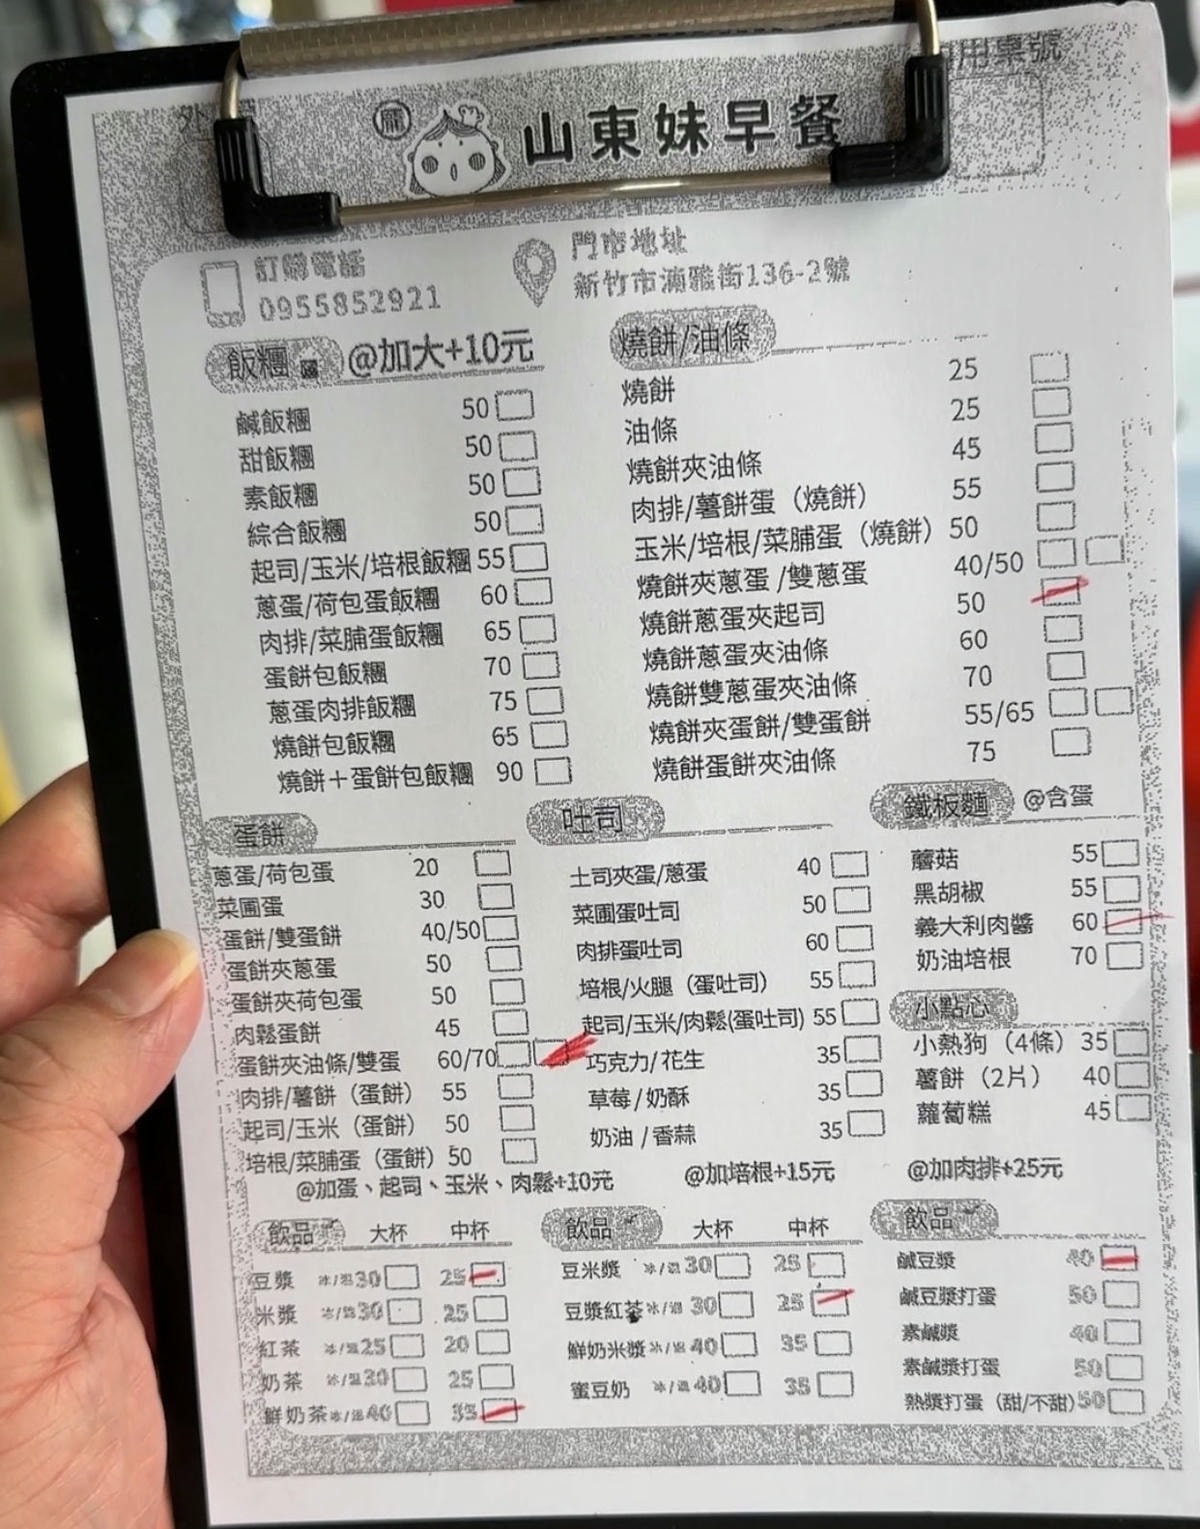 外
用桌號
山東妹早餐
訂購電話
0955852921
門市地址
新竹市湳雅街136-2號
飯糰 @加大+10元
鹹飯糰 50
甜飯糰 50
素飯糰 50
綜合飯糰 50
起司/玉米/培根飯糰 55
蔥蛋/荷包蛋飯糰 60
肉排/菜脯蛋飯糰 65
蛋餅包飯糰 70
蔥蛋肉排飯糰 75
燒餅包飯糰 65
燒餅+蛋餅包飯糰 90
燒餅/油條
燒餅 25
油條 25
燒餅夾油條 45
肉排/薯餅蛋（燒餅） 55
玉米/培根/菜脯蛋（燒餅） 50
燒餅夾蔥蛋/雙蔥蛋 40/50
燒餅蔥蛋夾起司 50
燒餅蔥蛋夾油條 60
燒餅雙蔥蛋夾油條 70
燒餅夾蛋餅/雙蛋餅 55/65
燒餅蛋餅夾油條 75
蛋餅
蔥蛋/荷包蛋 20
菜圃蛋 30
蛋餅/雙蛋餅 40/50
蛋餅夾蔥蛋 50
蛋餅夾荷包蛋 50
肉鬆蛋餅 45
蛋餅夾油條/雙蛋 60/70
肉排/薯餅（蛋餅） 55
起司/玉米（蛋餅） 50
培根/菜脯蛋（蛋餅） 50
吐司
土司夾蛋/蔥蛋 40
菜圃蛋吐司 50
肉排蛋吐司 60
培根/火腿（蛋吐司） 55
起司/玉米/肉鬆(蛋吐司) 55
巧克力/花生 35
草莓/奶酥 35
奶油/香蒜 35
鐵板麵 @含蛋
蘑菇 55
黑胡椒 55
義大利肉醬 60
奶油培根 70
小點心
小熱狗（4條） 35
薯餅（2片） 40
蘿蔔糕 45
@加蛋、起司、玉米、肉鬆+10元 @加培根+15元 @加肉排+25元
飲品 大杯 中杯
豆漿 冰/溫30 25
米漿 冰/溫30 25
紅茶 冰/溫25 20
奶茶 冰/溫30 25
鮮奶茶冰/溫40 35
飲品 大杯 中杯
豆米漿 冰/溫30 25
豆漿紅茶冰/溫 30 25
鮮奶米漿冰/溫40 35
蜜豆奶 冰/溫40 35
飲品
鹹豆漿 40
鹹豆漿打蛋 50
素鹹漿 40
素鹹漿打蛋 50
熱漿打蛋（甜/不甜）50